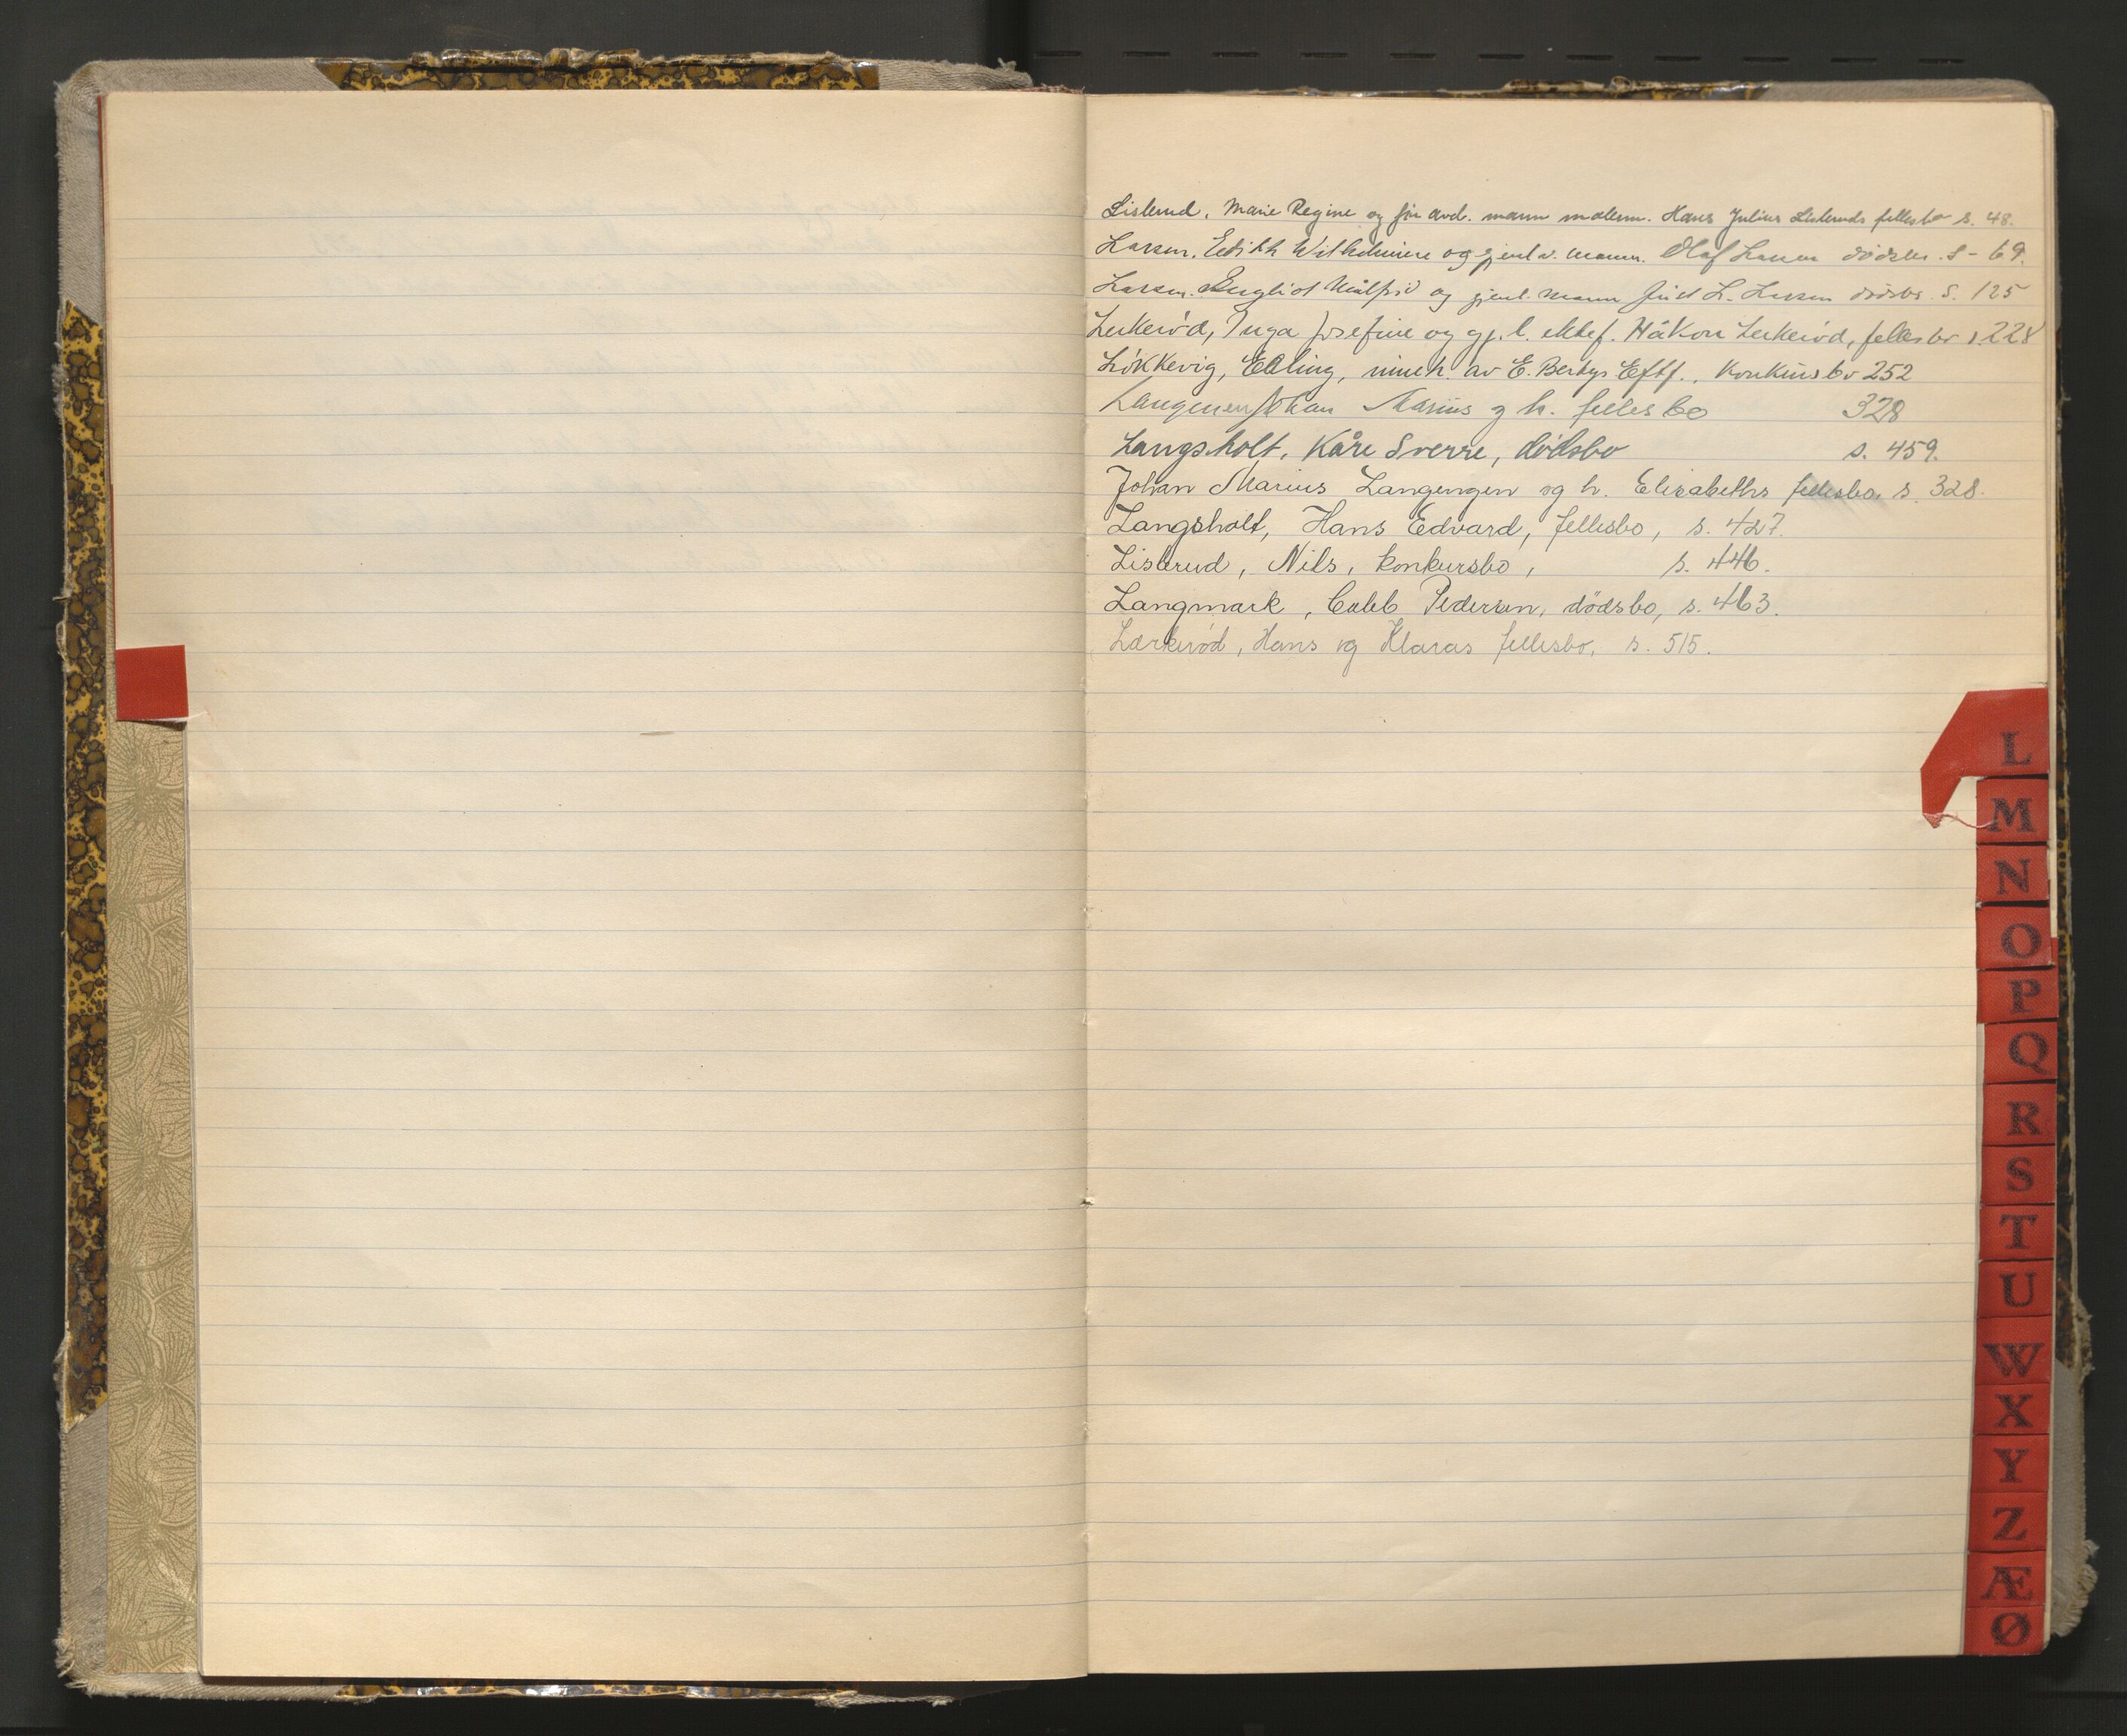 Lislerud, Marie Regine og før avd. mann malerm. Hans Julius Lisleruds fellesbo s. 48.
Larsen, Edith Wilhelmine og gjenl. mann. Olaf Larsen dödsbo. S - 69.
Larsen. Bergliot Målfrid og gjenl. mann Juul L. Larsen dödsbo. S. 125
Lerkeröd, Inga Josefine og gj. l. ektef. Håkon Lerkeröd, fellesbo s. 228
Lökkevig, Elling, inneh. av E. Bertys Eftf., Konkursbo 252
Langengen Johan Marius og h. fellesbo 328
Langsholt, Kåre Sverre, dödsbo s. 459.
Johan Marius Langengen og h. Elisabeths fellesbo s. 328.
Langsholt, Hans Edvard, fellesbo, s. 427.
Lislerud, Nils, konkursbo, s. 446.
Langmark, Caleb Pedersen, dödsbo, s. 463.
Lærkeröd, Hans og Klaras fellesbo, s. 515.
L
M
N
O
P
Q
R
S
T
U
W
X
Y
Z
Æ
Ø